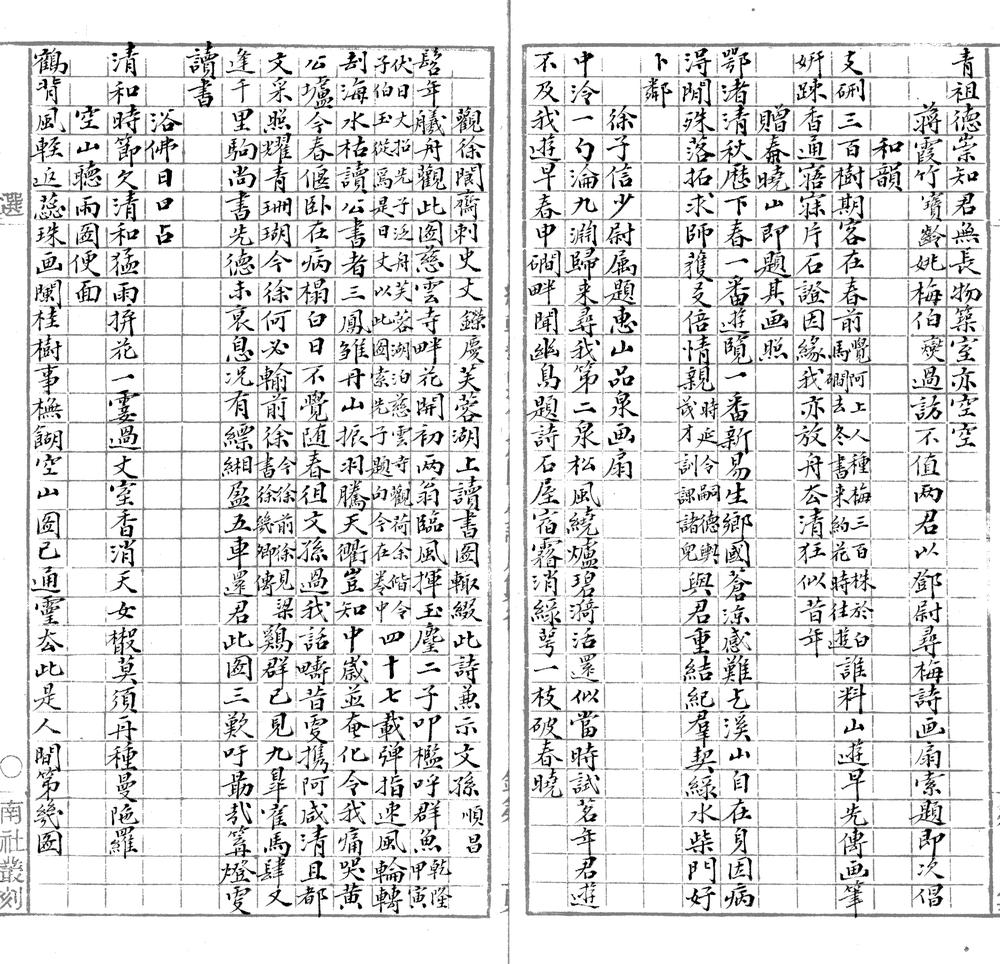 青祖德崇知君無長物築室亦空空
蔣霞竹寶齡姚梅伯燮過訪不值两君以鄧尉尋梅詩画扇索題即次倡
和韻
支硎三百樹期客在春前覺阿上人種梅三百株於白馬磵去冬書来約花時往遊誰料山遊早先傳画筆
妍踈香通寤寐片石證因緣我亦放舟去清狂似昔年
贈秦曉山即題其画照
鄂渚清秋歷下春一番遊覽一番新易生鄉國蒼凉感難乞溪山自在身因病
淂閒殊落拓求師獲友倍情親時延令嗣德輿茂才訓課諸兒與君重結紀羣契綠水柴門好
卜鄰
徐子信少尉属題惠山品泉画扇
中泠一勺瀹九淵歸来尋我第二泉松風繞爐碧漪活還似當時試茗年君遊
不及我遊早春申磵畔聞幽鳥題詩石屋宿霧消綠萼一枝破春曉
觀徐閬齋刺史丈鑅慶芙蓉湖上讀書圖輙綴此詩兼示文孫順昌
髫年艤舟觀此圖慈雲寺畔花開初两翁臨風揮玉麈二子叩檻呼群魚乾隆甲寅
伏日丈招先子泛舟芙蓉湖泊慈雲寺觀荷余偕令子伯玉從焉是日丈以此圖索先子題句今在卷中四十七載弹指速風輪轉
刦海水枯讀公書者三鳳雏丹山振羽騰天衢豈知中嵗並奄化令我痛哭黄
公壚今春偃卧在病榻白日不覺随春徂文孫過我話疇昔更携阿咸清且都
文采照耀青珊瑚今徐何必輸前徐今徐前徐見梁書徐幾卿傳鷄群已見九皐隺馬肆又
逢千里駒尚書先德未衰息况有縹緗盈五車還君此圖三歎吁勗哉篝燈更
讀書
浴佛日口占
清和時節久清和猛雨拚花一霎過丈室香消天女散莫須再種曼陁羅
空山聽雨圖便面
鶴背風輕返蕊珠画闌桂樹事模餬空山圖已通靈去此是人間第幾圖
選
南社叢刻